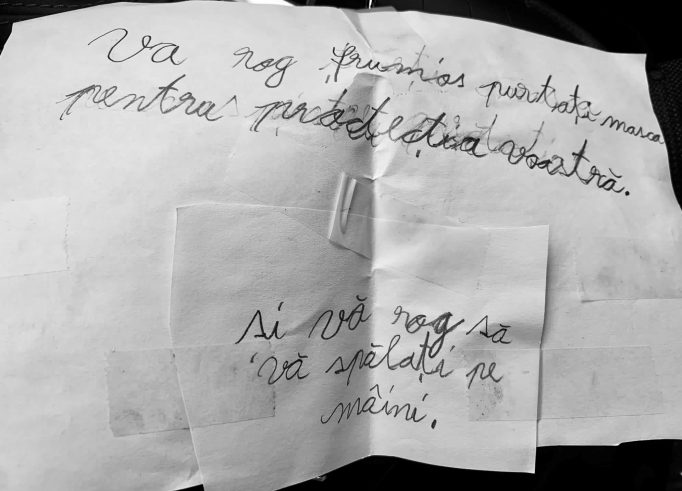 Va rog frumos purtați masca
pentru protecția voastră.
si vă rog să
vă spălați pe
mâini.